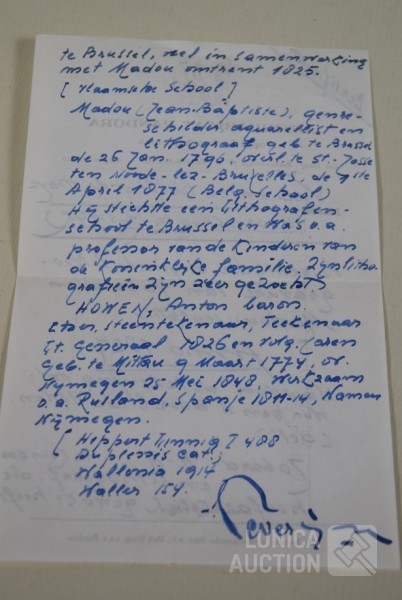 te Brussel, veel in samenwerking
met Madou omtrent 1825.
[Vlaamsche School]
Madou (Jean-Baptiste), genre-
schilder, aquarellist en
lithograaf, geb. te Brussel
de 26 Jan. 1796, overl. te St. Josse
ten Noode-lez-Bruxelles, de
April 1877 (Belg. School)
Hij stichtte een lithografen-
school te Brussel en was o.a.
professor van de kinderen van
de Koninklijke familie. Zijn litho
grafieën zijn zeer gezocht]
HOWEN, Anton baron.
Etser, steentekenaar, Teekenaar
Lt. Generaal 1826 en volg. Jaren
geb. te Mittau 9 Maart 1774, ov.
Nymegen 25 Mei 1848, Werkzaam
o.a. Rusland, Spanje 1811-14, Namen
Nijmegen.
[Hippert Linnig I 488
Duplessis Cat.
Wallonia 1914
Waller 154.
LUNICA
AUCTION